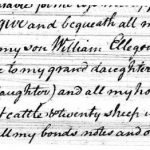 give and bequeath all m
my son William Ellegoo
e to my grand daughter
aughter) and all my ho
t cattle & twenty sheep
ll my bonds notes and o